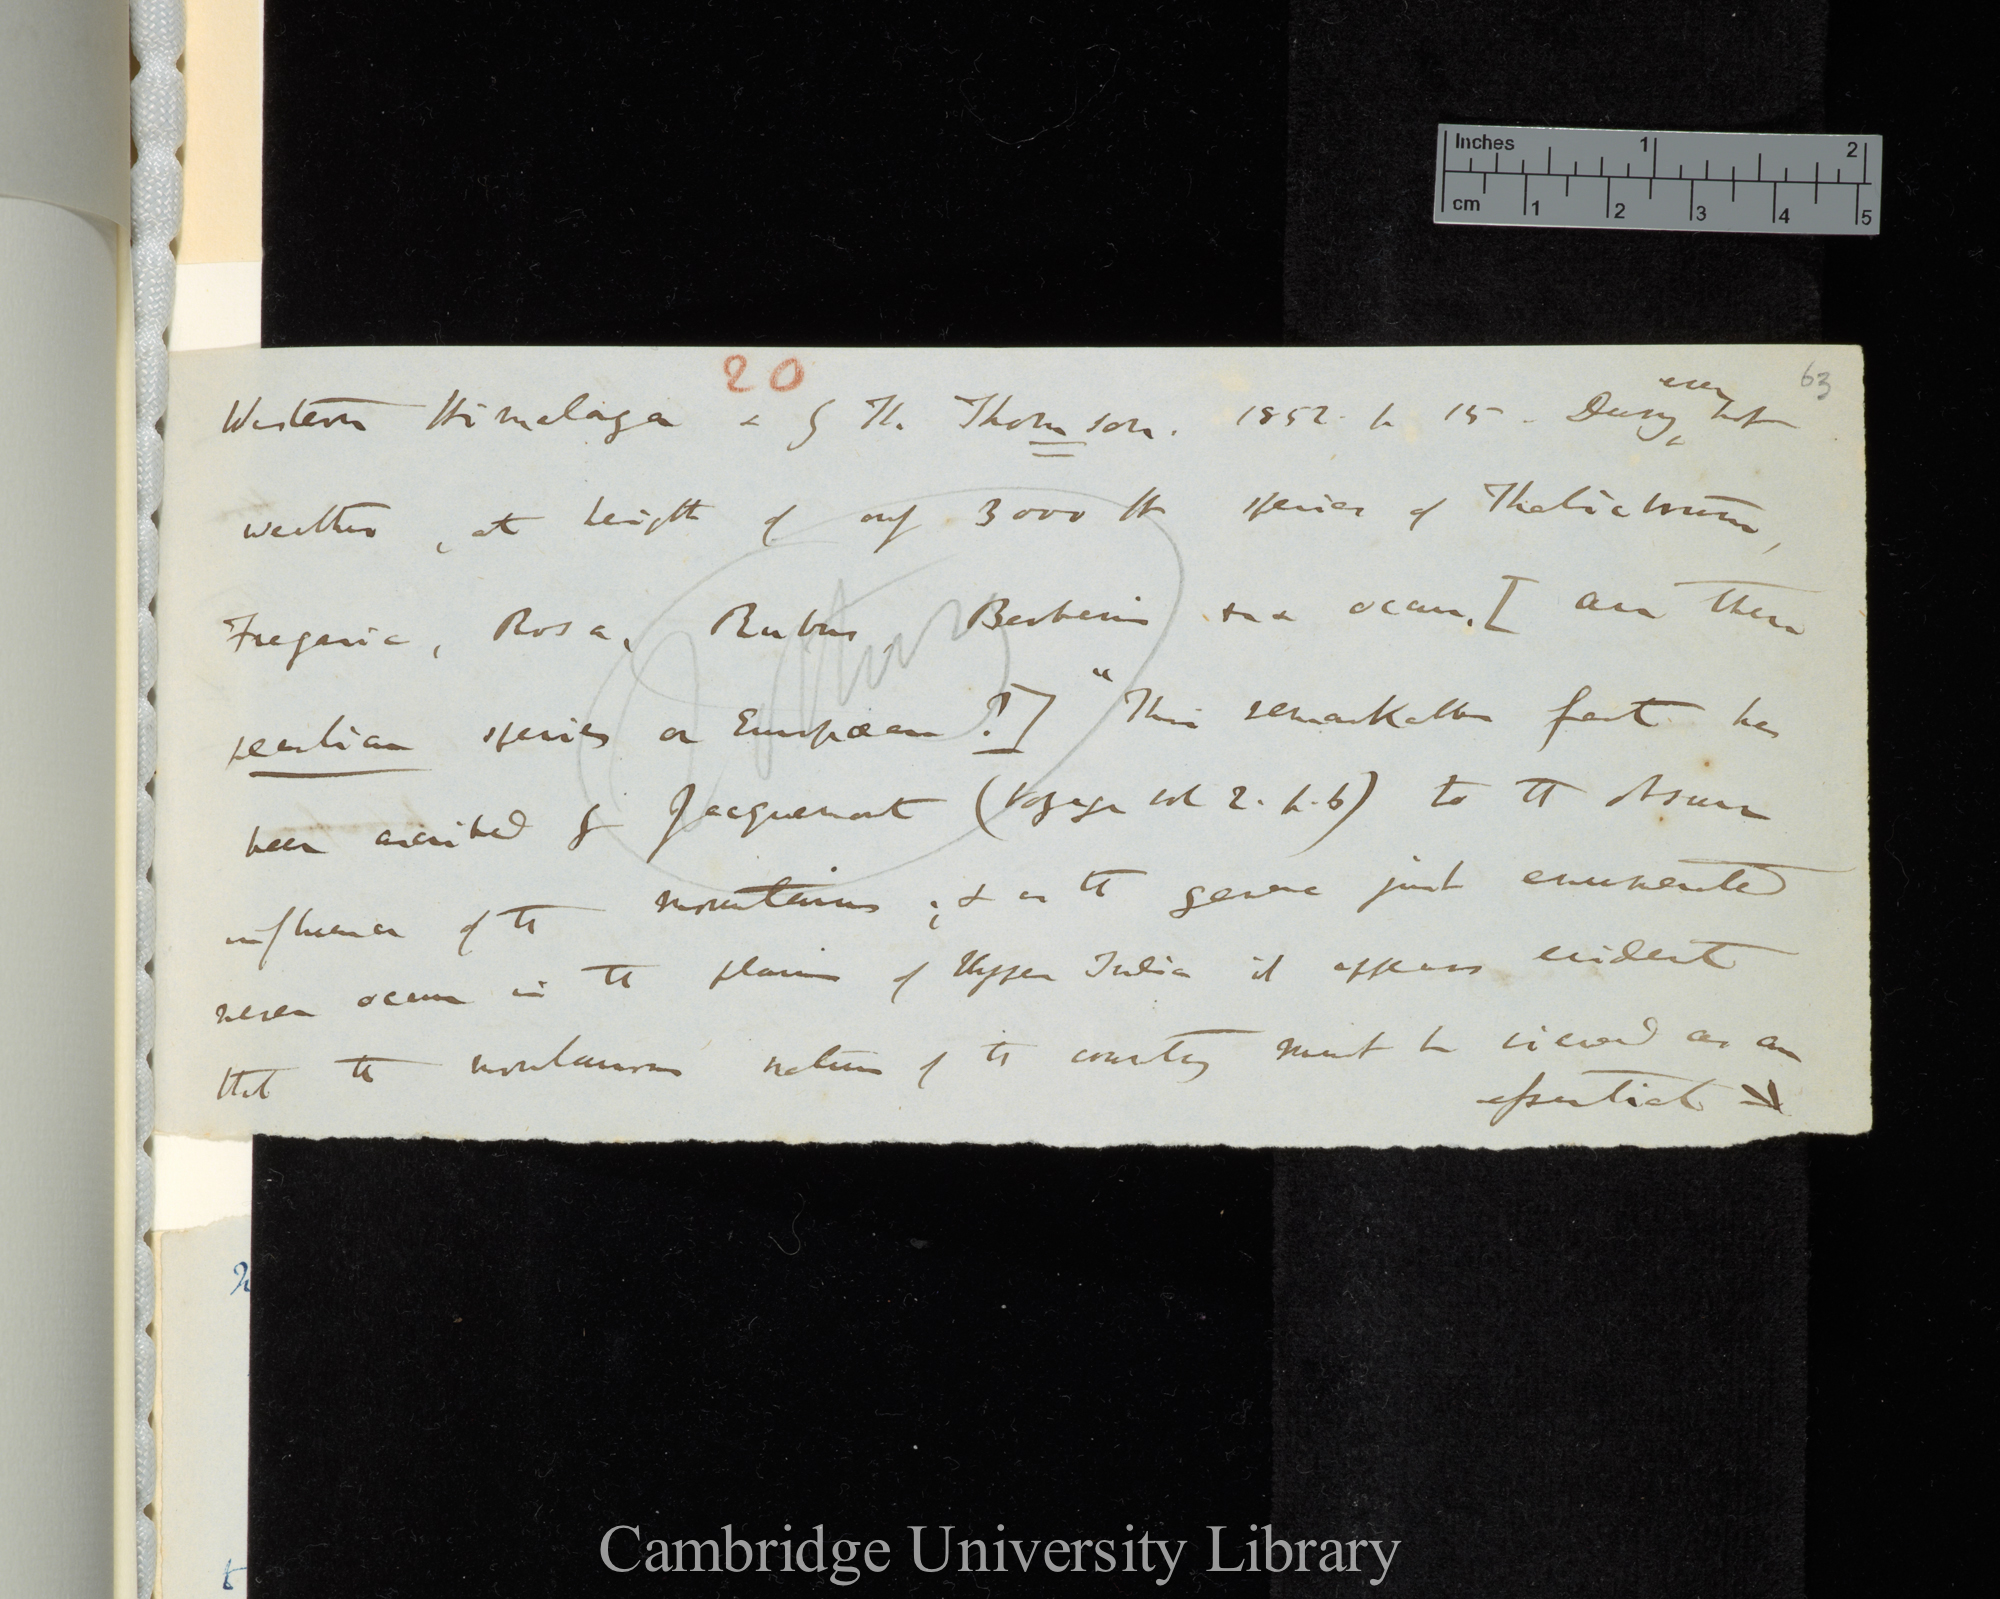 20
63
Western Himalaya & by Th. Thomson. 1852. p 15. During very hot
weather, at height of only 3000 ft species of Thalictrum,
Fragaria, Rosa, Rubus, Berberis &c &c occur. [are these
peculiar species or European?] "This remarkable fact has
been ascribed by Jacquemont (Voyage vol 2. p. 6) to the obscure
influence of the mountains; & as the genera just enumerated
never occur in the plains of Upper India it appears evident
that the mountainous nature of the country must be viewed as an
essential
Inches 1 2
cm 1 2 3 4 5
Cambridge University Library